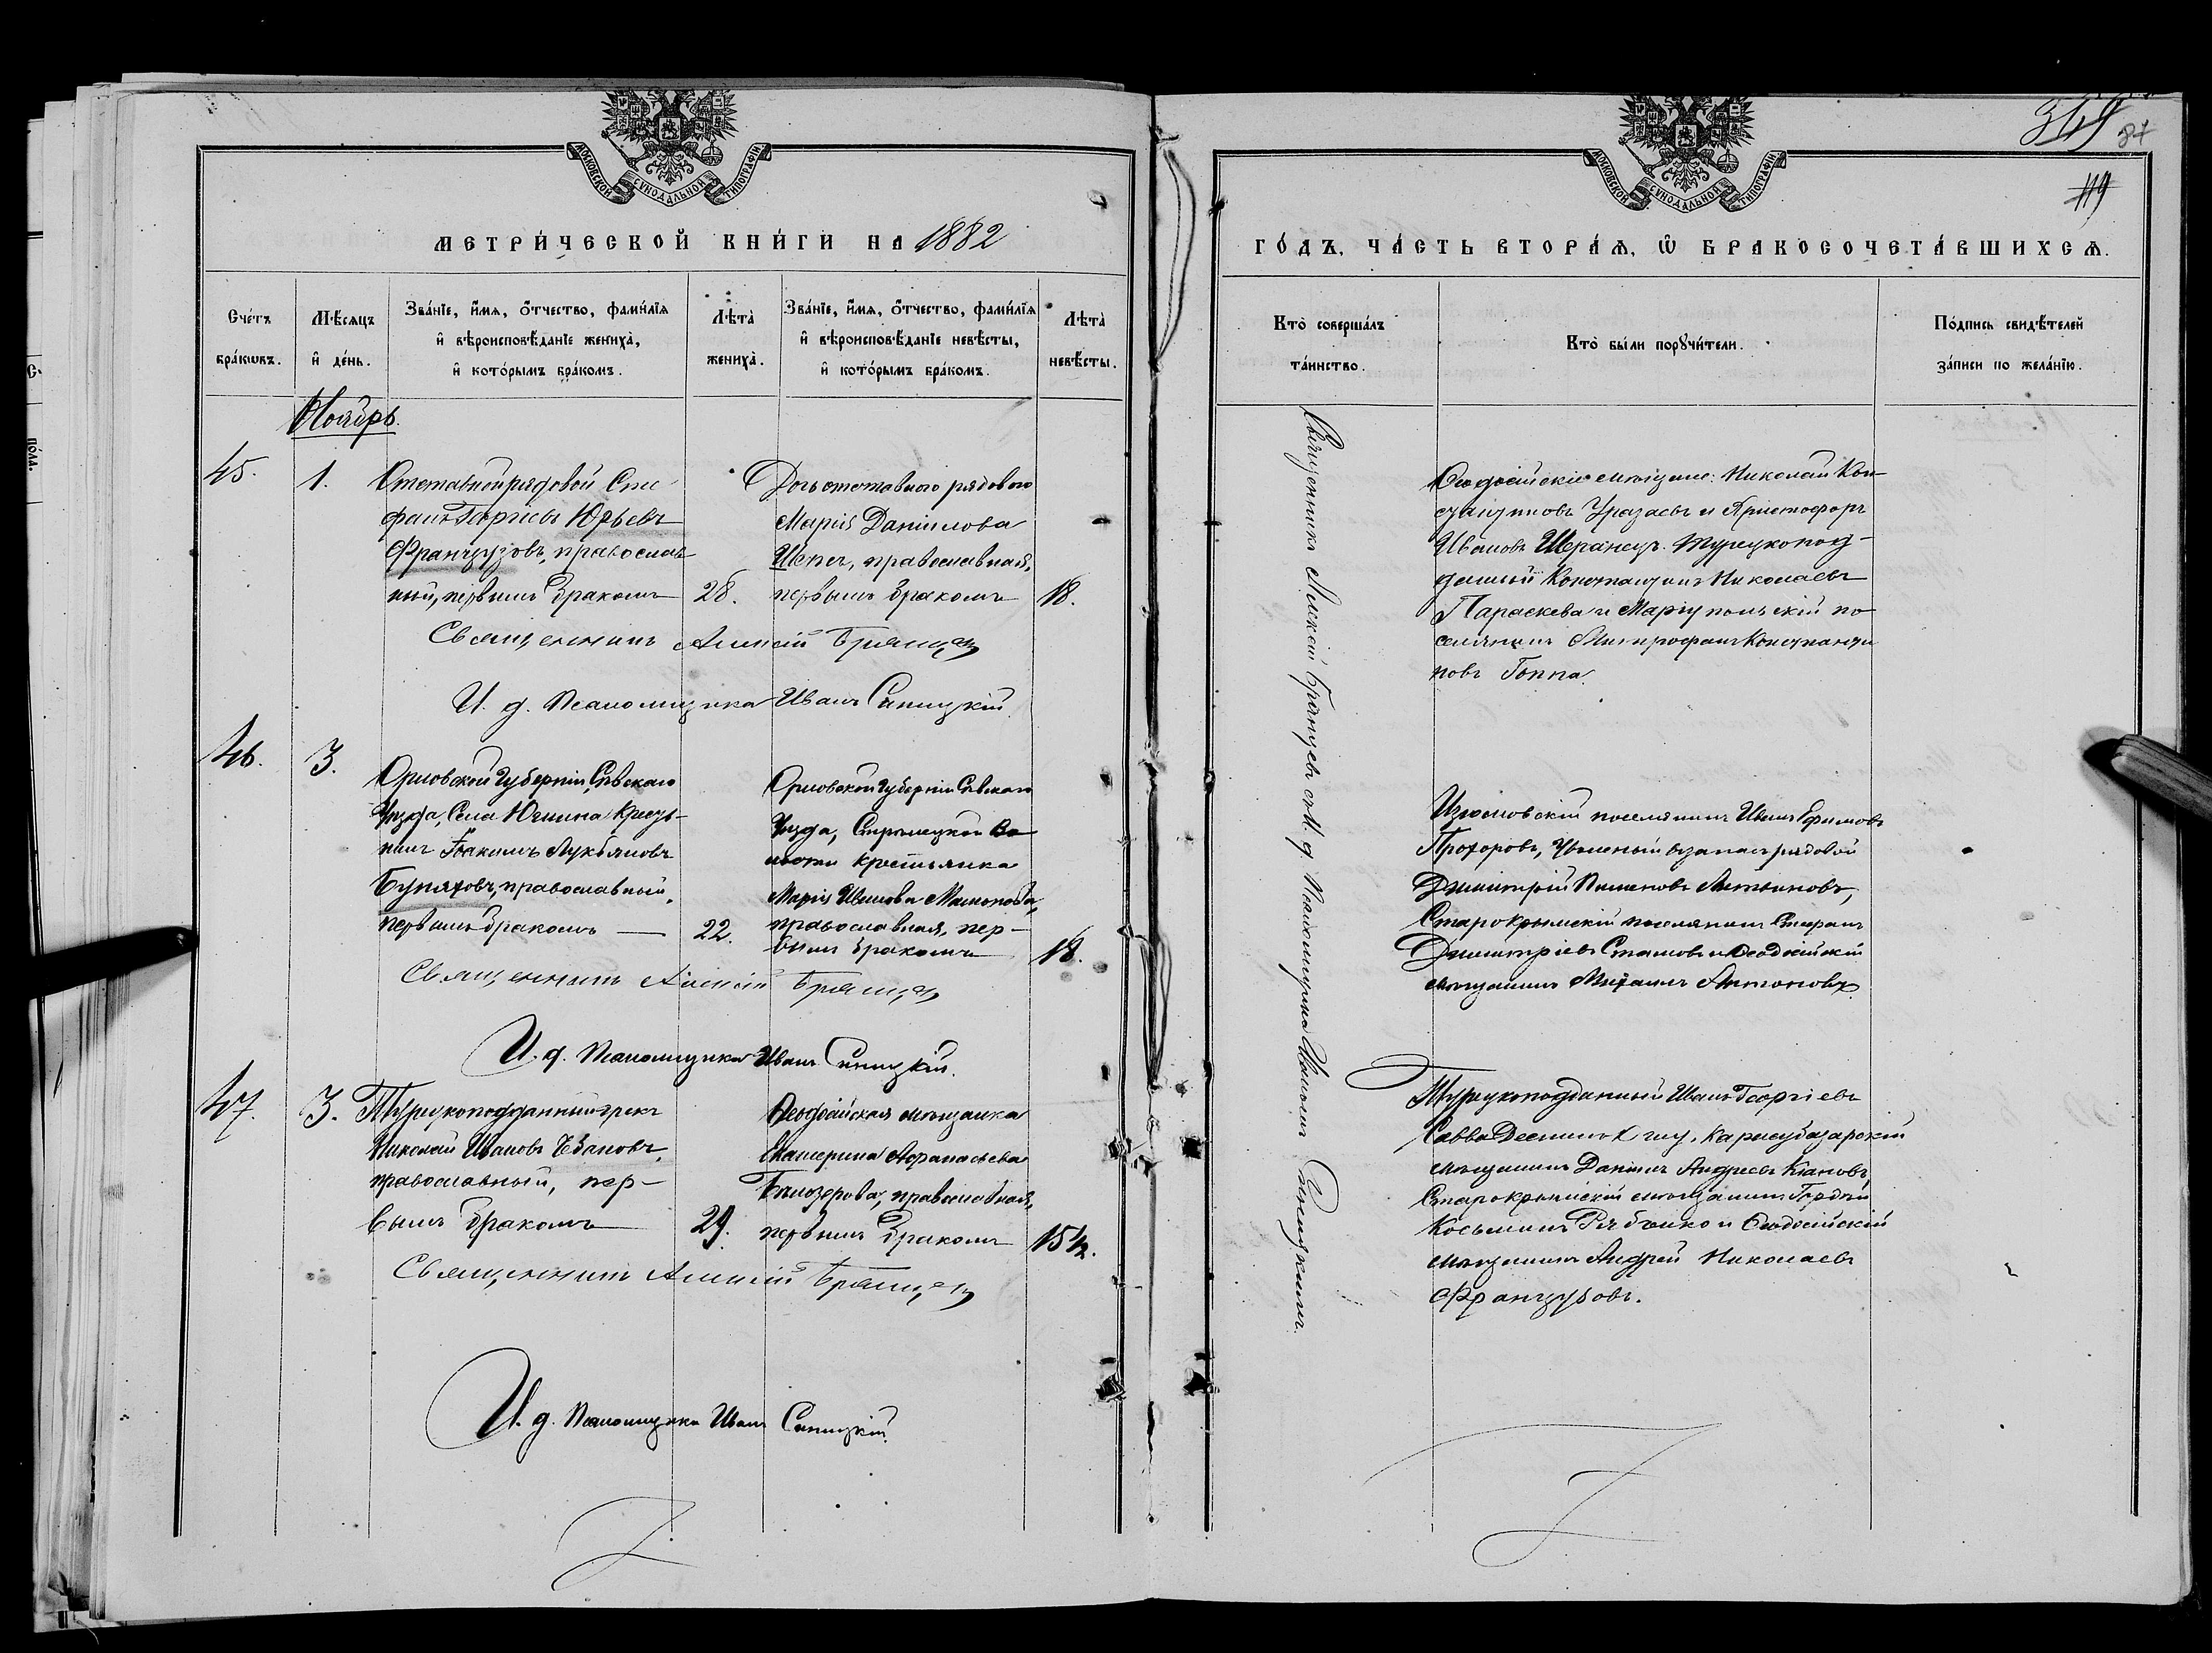 МОСКОВСКОЙ СѴНОДАЛЬНОЙ ТИПОГРАФІИ
МЕТРИ́ЧЕСКОЙ КНИ́ГИ НА 1882
Сче́тъ бра́кωвъ.
Мѣ́сяцъ и҆ де́нь.
Зва́нїе, и҆́мя, ѻ҆́тчество, фами́лїя
и҆ вѣроисповѣ́данїе жениха̀,
и҆ кото́рымъ бра́комъ.
Лѣта̀ жениха̀.
Зва́нїе, и҆́мя, ѻ҆́тчество, фами́лїя
и҆ вѣроисповѣ́данїе невѣ́сты,
и҆ кото́рымъ бра́комъ.
Лѣта̀ невѣ́сты.
Ноябрь.
45.
1.
Отставной рядовой Сте
фанъ Георгіевъ Юрьевъ
Французовъ, православ
ный, первымъ бракомъ
28.
Дочь отставного рядового
Марія Даніилова
православная,
первымъ бракомъ
18.
Священникъ Алексій Брянцев
И. д. Псаломщика Иванъ Синицкій.
46.
3.
Орловской Губерніи, Сѣвскаго
Уѣзда, Села Юшина Кресть-
нинъ Іоакимъ Лукьяновъ
православный,
первымъ бракомъ
22.
Орловской Губерніи Сѣвскаго
Уѣзда, Стрѣлецкой Во
лости крестьянка
Марія Иванова
православная, пер-
вымъ бракомъ
18.
Священникъ Алексій Брянцев
И. д. Псаломщика Иванъ Синицкій.
47.
3.
Турецкоподданный грекъ
Николай Ивановъ
православный, пер-
вымъ бракомъ
29.
Ѳеодосійская мѣщанка
Екатерина Аѳанасьева
Бѣлозерова, православная,
первымъ бракомъ
15 1/2.
Священникъ Алексій Брянцев
И. д. Псаломщика Иванъ Синицкій.
319
87
119
МОСКОВСКОЙ СѴНОДАЛЬНОЙ ТИПОГРАФІИ
ГО́ДЪ, ЧА́СТЬ ВТОРА́Я, Ѽ БРАКОСОЧЕТА́ВШИХСЯ.
Кто̀ соверша́лъ
та́инство.
Кто̀ бы́ли порꙋчи́тели.
По́дпись свидѣ́телей
за́писи по жела́нїю.
Священникъ Алексій Брянцевъ съ И. д. Псаломщика Иваномъ Синицкимъ.
Ѳеодосійскіе мѣщане: Николай Кон
стантиновъ и Христофоръ
Ивановъ Шеранецъ. Турецкопод-
данный Константинъ Николаевъ
Параскева и Маріупольскій по
селянинъ Митрофанъ Константи
новъ Гоппа.
Изюмовскій поселянинъ Иванъ Ефимовъ
Прохоровъ, уволеный въ запасъ рядовой
Димитрій Пименовъ
Старокрымскій поселянинъ Стефанъ
Димитріевъ Стамовъ и Ѳеодосійскій
мѣщанинъ Михаилъ Антоновъ.
Турецкоподданный Иванъ Георгіевъ
Савва Карасубазарскій
мѣщанинъ Даніилъ Андреевъ
Старокрымскій мѣщанинъ Гордѣй
Косьминъ Рябченко и Ѳеодосійскій
мѣщанинъ Андрей Николаевъ
Французовъ.